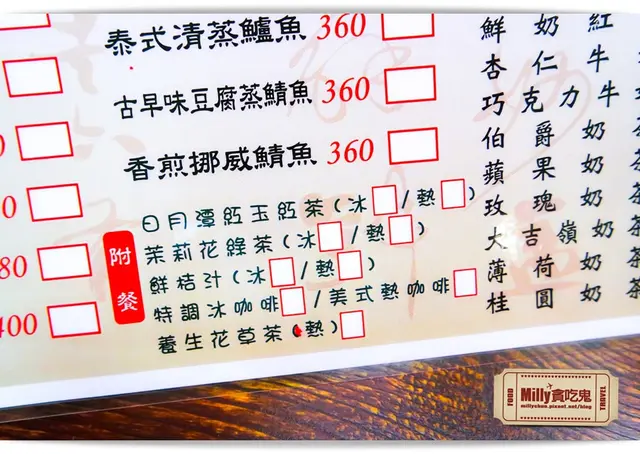 泰式清蒸鱸魚 360
古早味豆腐蒸鯖魚 360
香煎挪威鯖魚 360
80
400
附餐
日月潭紅玉紅茶(冰 /熱 )
茉莉花綠茶(冰 /熱 )
鮮桔汁(冰 /熱 )
特調冰咖啡 /美式熱咖啡
養生花草茶(熱)
鮮奶紅
杏仁牛
巧克力牛
伯爵奶
蘋果奶
玫瑰奶
大吉嶺奶茶
薄荷奶茶
桂圓奶茶
FOOD
Milly貪吃鬼
millychun.pixnet.net/blog
TRAVEL